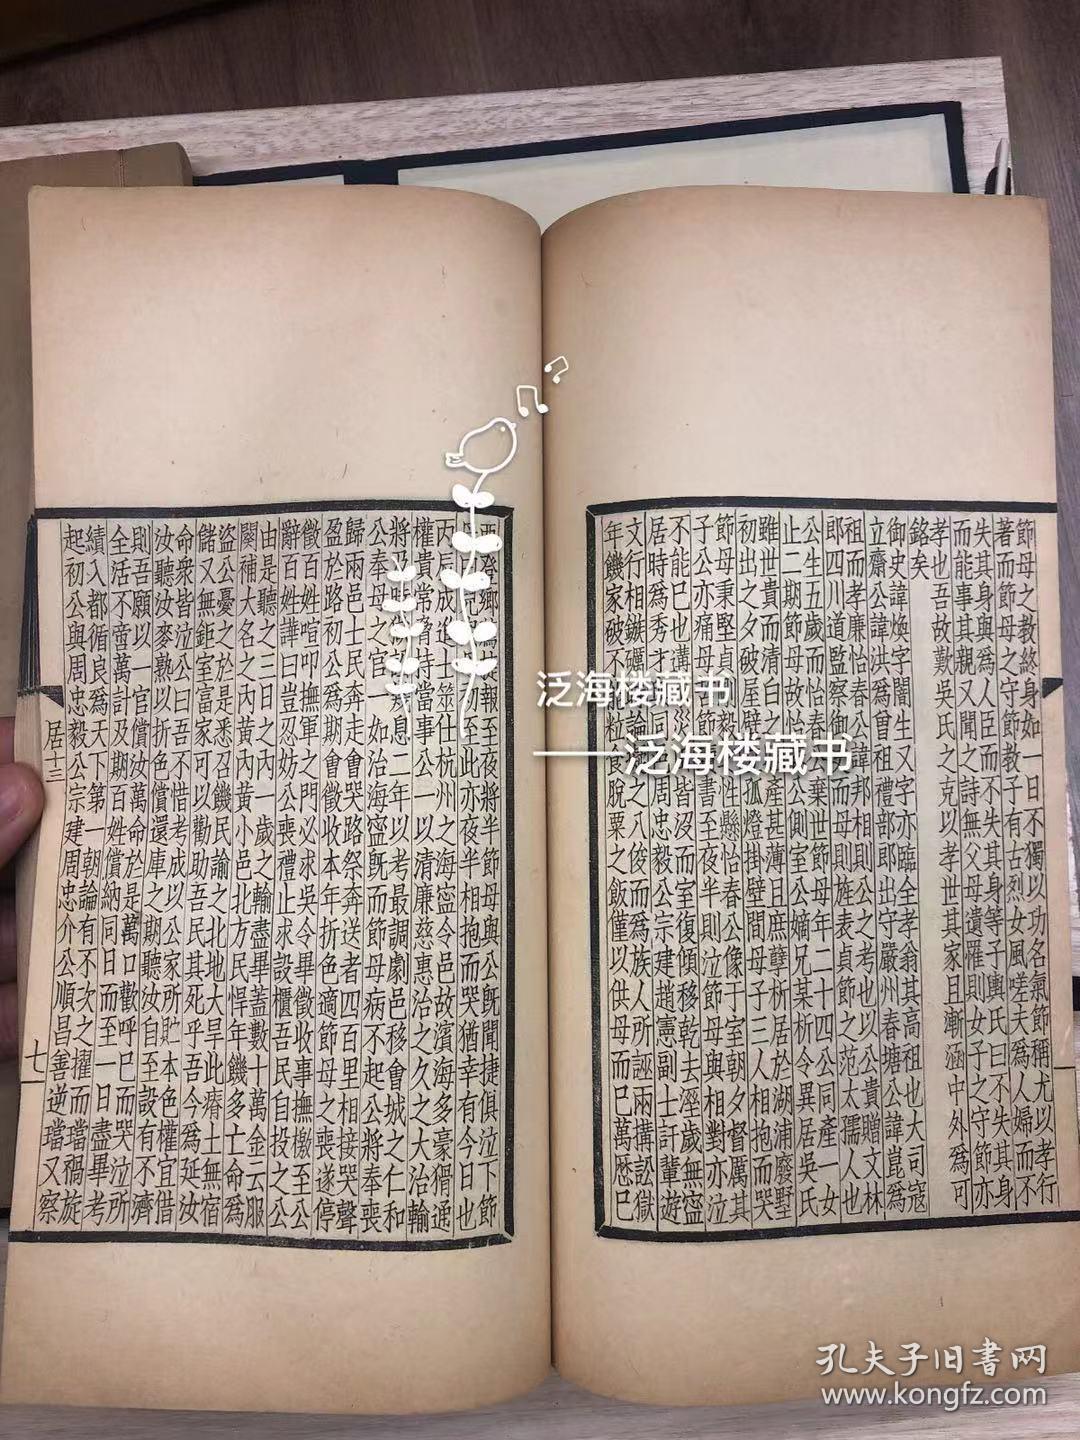 節母之教終身如一日不獨以功名氣節稱尤以孝行
著而節母之守節教子有古烈女風嗟夫為人婦而不
失其身與為人臣而不失其身等子輿氏曰不失其身
而能事其親又聞之詩無父母遺罹則女子之守節亦
孝也吾故歎吳氏之克以孝世其家且漸涵中外為可
銘矣
御史諱煥字闇生又字亦臨全孝翁其高祖也大司寇
立齋公諱洪為曾祖禮部郎出守嚴州春塘公諱崑為
祖而孝廉怡春公諱邦相則公之考也以公貴贈文林
郎四川道監察御史而母則旌表貞節之范太孺人也
公生五歲而怡春公棄世節母年二十四公同產一女
止二期節母故怡公側室公嫡兄某析令異居吳氏
雖世貴而清白之產甚薄且庶孽析居於湖浦廢墅
初出之夕破屋壁掛壁間母子三人相抱而哭
節母秉堅貞毅性懸怡春公像于室朝夕督厲其
子公亦痛母節書至夜半則泣節母與相對亦泣
不能已也講災皆沒而室復傾移乾去溼歲無寧
居時為秀才同周忠毅公宗建趙憲副士訂輩遊
文行相鏃礪論之八俊而為族人所誣兩搆訟獄
年饑家破不粒食脫粟之飯僅以供母而已萬曆已
酉登鄉薦捷報至夜將半節母與公既聞捷俱泣下節
至此亦夜半相抱而哭猶幸有今日也
丙辰成進士筮仕杭州之海寧令邑故濱海多豪猾通
權貴常脅持當事公一以清廉慈惠治之久之大治輸
將息二年以考最調劇邑移會城之仁和
公奉母之官一如治海寧既而節母病不起公將奉喪
歸兩邑士民奔走會哭路祭奔送者四百里相接哭聲
盈於路初公為期會徵收本年折色適節母之喪遂停
徵百姓喧叩撫軍之門必求吳令畢徵收事撫檄至公
辭百姓譁曰豈忍妨公喪禮止求設櫃吾民自投之公
由是聽之三日之內一歲之輸盡畢蓋數十萬金云服
闋補大名之內黃內黃小邑北方民悍年饑多亡命為
盜公憂之於是悉召饑民諭之北地大旱此瘠土無宿
儲又無鉅室富家可以勸助吾民其死乎吾今為延汝
命眾皆泣公曰吾不惜考成以公家所貯本色權宜借
汝聽汝麥熟以折色還庫之期聽汝自至設有不濟
則吾願以一官償汝萬命於是萬口歡呼已而哭泣所
全活不啻萬計及期百姓償納同日而至一日盡畢考
績入都循良為天下第一朝論有不次之擢而璫禍旋
起初公與周忠毅公宗建周忠介公順昌善逆璫又察
居十三
七
泛海楼藏书
——泛海楼藏书
孔夫子旧書网
www.kongfz.com